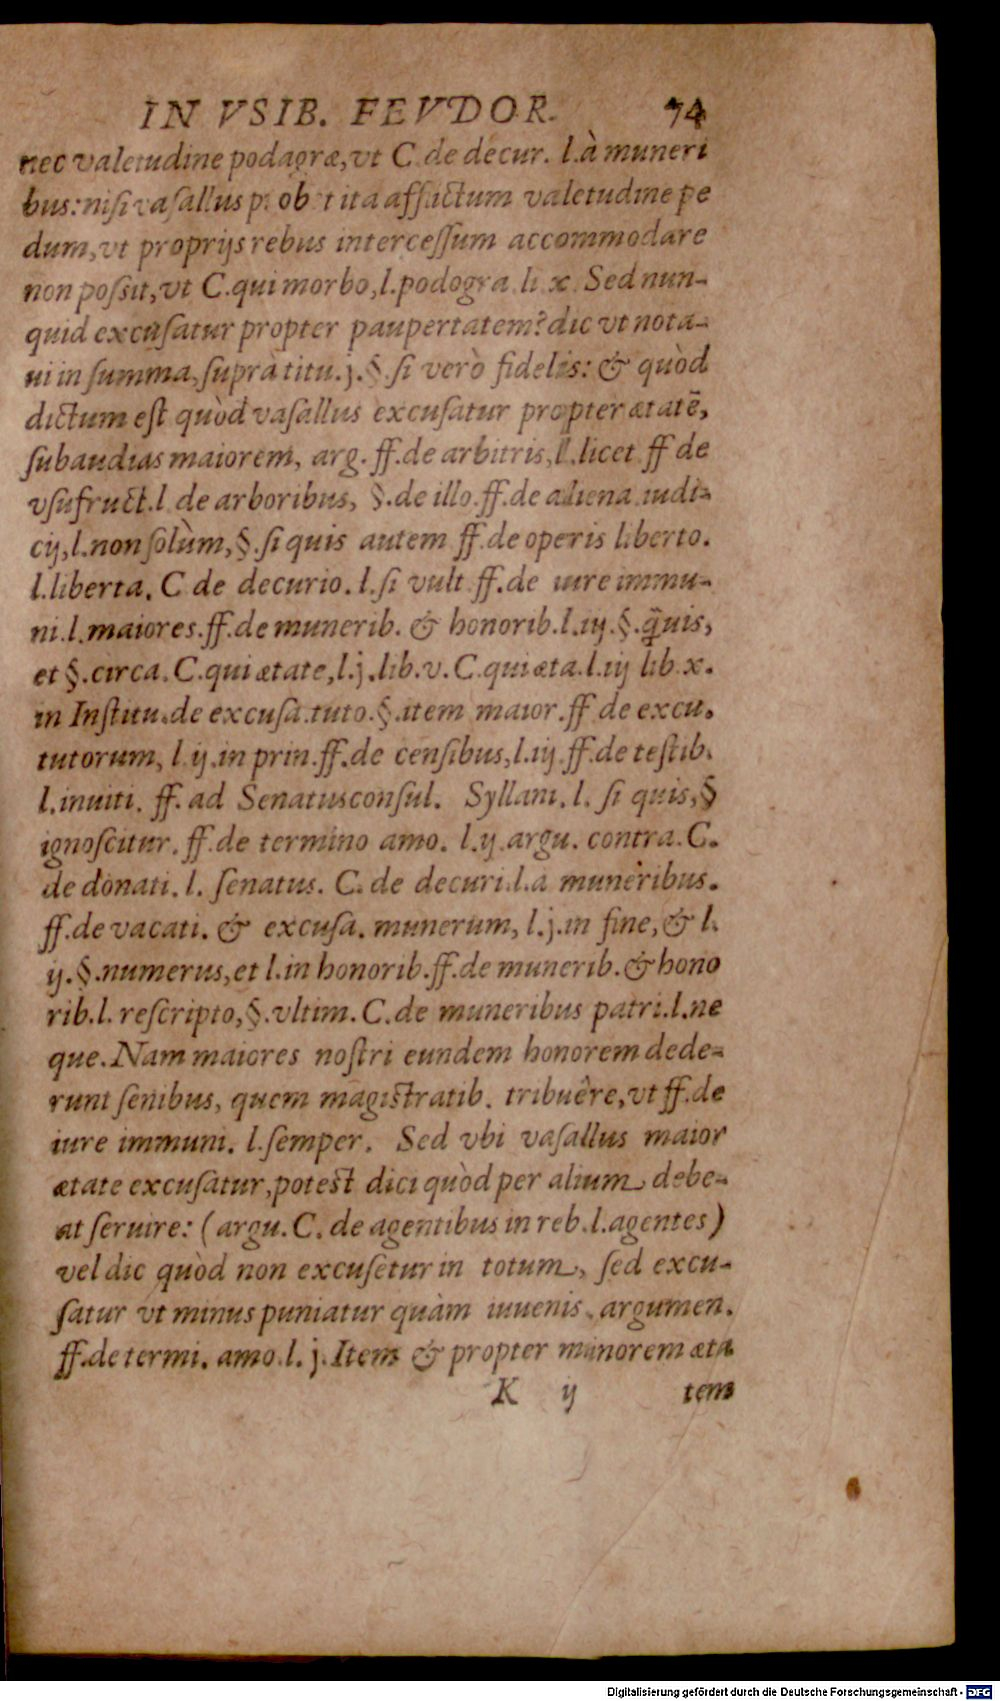 IN VSIB. FEVDOR. 74
nec valetudine podagræ, vt C. de decur. l. à muneri
bus: nisi vasallus p. ob t ita afflictum valetudine pe
dum, vt proprijs rebus intercessum accommodare
non possit, vt C. qui morbo, l. podogra li x. Sed nun-
quid excusatur propter paupertatem? dic vt nota-
ui in summa, suprà titu. j. §. si verò fidelis: & quòd
dictum est quòd vasallus excusatur propter ætatẽ,
subaudias maiorem, arg. ff. de arbitris, l. licet ff de
vsufruct. l de arboribus, §. de illo. ff. de aliena iudi-
cij, l. non solùm, §. si quis autem ff. de operis liberto.
l. liberta. C de decurio. l. si vult ff. de iure immu-
ni. l. maiores. ff. de munerib. & honorib. l. iij. §. q̃uis,
et §. circa. C. qui ætate, l. j. lib. v. C. qui æta. l. iij lib. x.
in Institu. de excusa. tuto. §. item maior. ff de excu.
tutorum, l ij. in prin. ff. de censibus, l. iij. ff. de testib.
l. inuiti. ff. ad Senatusconsul. Syllani. l. si quis, §
ignoscitur. ff. de termino amo. l. ij argu. contra. C.
de donati. l. senatus. C. de decuri. l. a muneribus.
ff. de vacati. & excusa. munerum, l. j. in fine, & l.
ij. §. numerus, et l. in honorib. ff. de munerib. & hono
rib. l. rescripto, §. vltim. C. de muneribus patri. l. ne
que. Nam maiores nostri eundem honorem dede-
runt senibus, quem magistratib. tribuêre, vt ff. de
iure immuni. l. semper. Sed vbi vasallus maior
ætate excusatur, potest dici quòd per alium debe-
at seruire: (argu. C. de agentibus in reb. l. agentes)
vel dic quòd non excusetur in totum, sed excu-
satur vt minus puniatur quàm iuuenis. argumen.
ff. de termi. amo. l. j. Item & propter minorem æta
K ij tem
Digitalisierung gefördert durch die Deutsche Forschungsgemeinschaft - DFG